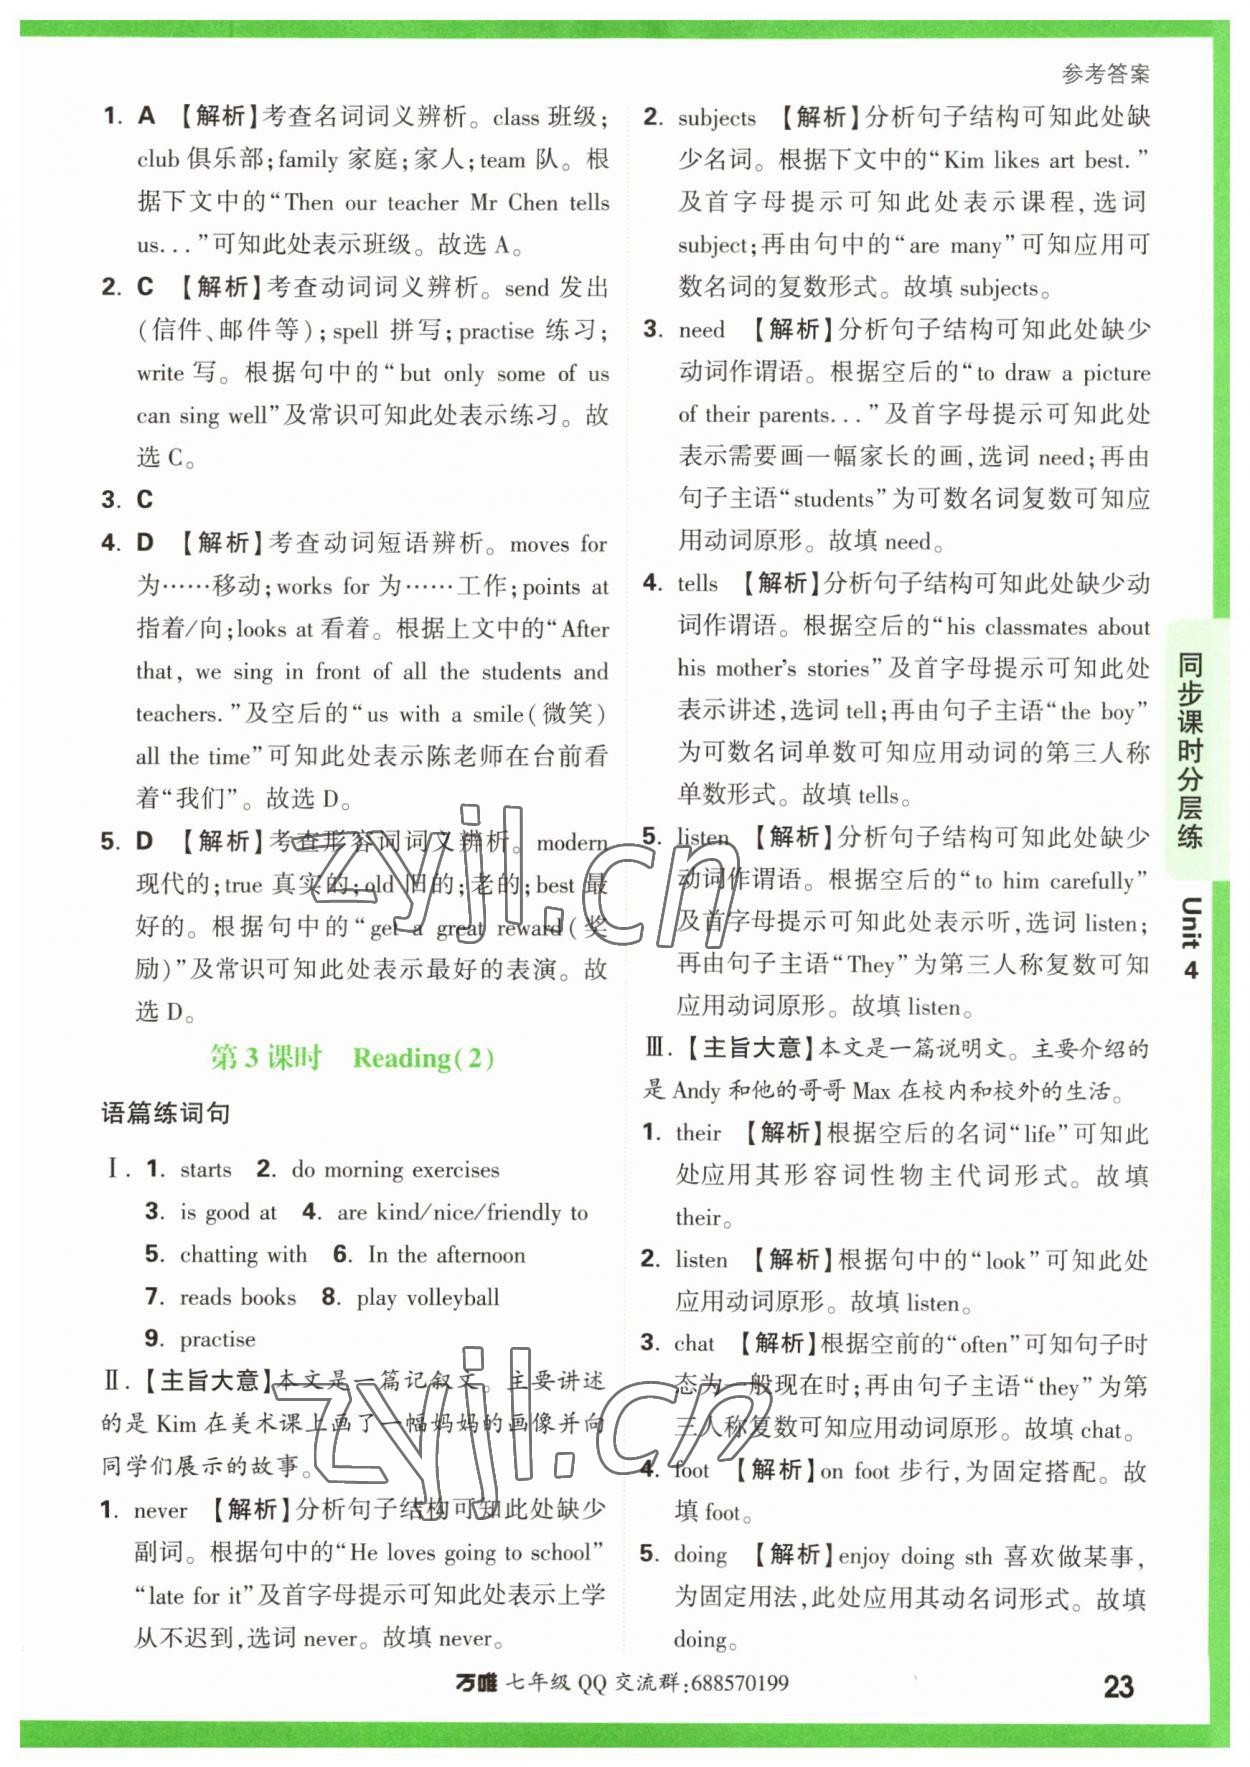 参考答案
1. A 【解析】考查名词词义辨析。class 班级;
club 俱乐部;family 家庭;家人;team 队。根
据下文中的“Then our teacher Mr Chen tells
us...”可知此处表示班级。故选 A。
2. C 【解析】考查动词词义辨析。send 发出
(信件、邮件等);spell 拼写;practise 练习;
write 写。根据句中的“but only some of us
can sing well”及常识可知此处表示练习。故
选 C。
3. C
4. D 【解析】考查动词短语辨析。moves for
为……移动;works for 为……工作;points at
指着/向;looks at 看着。根据上文中的“After
that, we sing in front of all the students and
teachers.”及空后的“us with a smile(微笑)
all the time”可知此处表示陈老师在台前看
着“我们”。故选 D。
5. D 【解析】考查形容词词义辨析。modern
现代的;true 真实的;old 旧的;老的;best 最
好的。根据句中的“get a great reward(奖
励)”及常识可知此处表示最好的表演。故
选 D。
第 3 课时 Reading(2)
语篇练词句
Ⅰ. 1. starts 2. do morning exercises
3. is good at 4. are kind/nice/friendly to
5. chatting with 6. In the afternoon
7. reads books 8. play volleyball
9. practise
Ⅱ.【主旨大意】本文是一篇记叙文。主要讲述
的是 Kim 在美术课上画了一幅妈妈的画像并向
同学们展示的故事。
1. never 【解析】分析句子结构可知此处缺少
副词。根据句中的“He loves going to school”
“late for it”及首字母提示可知此处表示上学
从不迟到,选词 never。故填 never。
2. subjects 【解析】分析句子结构可知此处缺
少名词。根据下文中的“Kim likes art best.”
及首字母提示可知此处表示课程,选词
subject;再由句中的“are many”可知应用可
数名词的复数形式。故填 subjects。
3. need 【解析】分析句子结构可知此处缺少
动词作谓语。根据空后的“to draw a picture
of their parents...”及首字母提示可知此处
表示需要画一幅家长的画,选词 need;再由
句子主语“students”为可数名词复数可知应
用动词原形。故填 need。
4. tells 【解析】分析句子结构可知此处缺少动
词作谓语。根据空后的“his classmates about
his mother's stories”及首字母提示可知此处
表示讲述,选词 tell;再由句子主语“the boy”
为可数名词单数可知应用动词的第三人称
单数形式。故填 tells。
5. listen 【解析】分析句子结构可知此处缺少
动词作谓语。根据空后的“to him carefully”
及首字母提示可知此处表示听,选词 listen;
再由句子主语“They”为第三人称复数可知
应用动词原形。故填 listen。
Ⅲ.【主旨大意】本文是一篇说明文。主要介绍的
是 Andy 和他的哥哥 Max 在校内和校外的生活。
1. their 【解析】根据空后的名词“life”可知此
处应用其形容词性物主代词形式。故填
their。
2. listen 【解析】根据句中的“look”可知此处
应用动词原形。故填 listen。
3. chat 【解析】根据空前的“often”可知句子时
态为一般现在时;再由句子主语“they”为第
三人称复数可知应用动词原形。故填 chat。
4. foot 【解析】on foot 步行,为固定搭配。故
填 foot。
5. doing 【解析】enjoy doing sth 喜欢做某事,
为固定用法,此处应用其动名词形式。故填
doing。
同步课时分层练
Unit 4
zyjl.cn
zyjl.cn
万唯 七年级 QQ 交流群:688570199
23